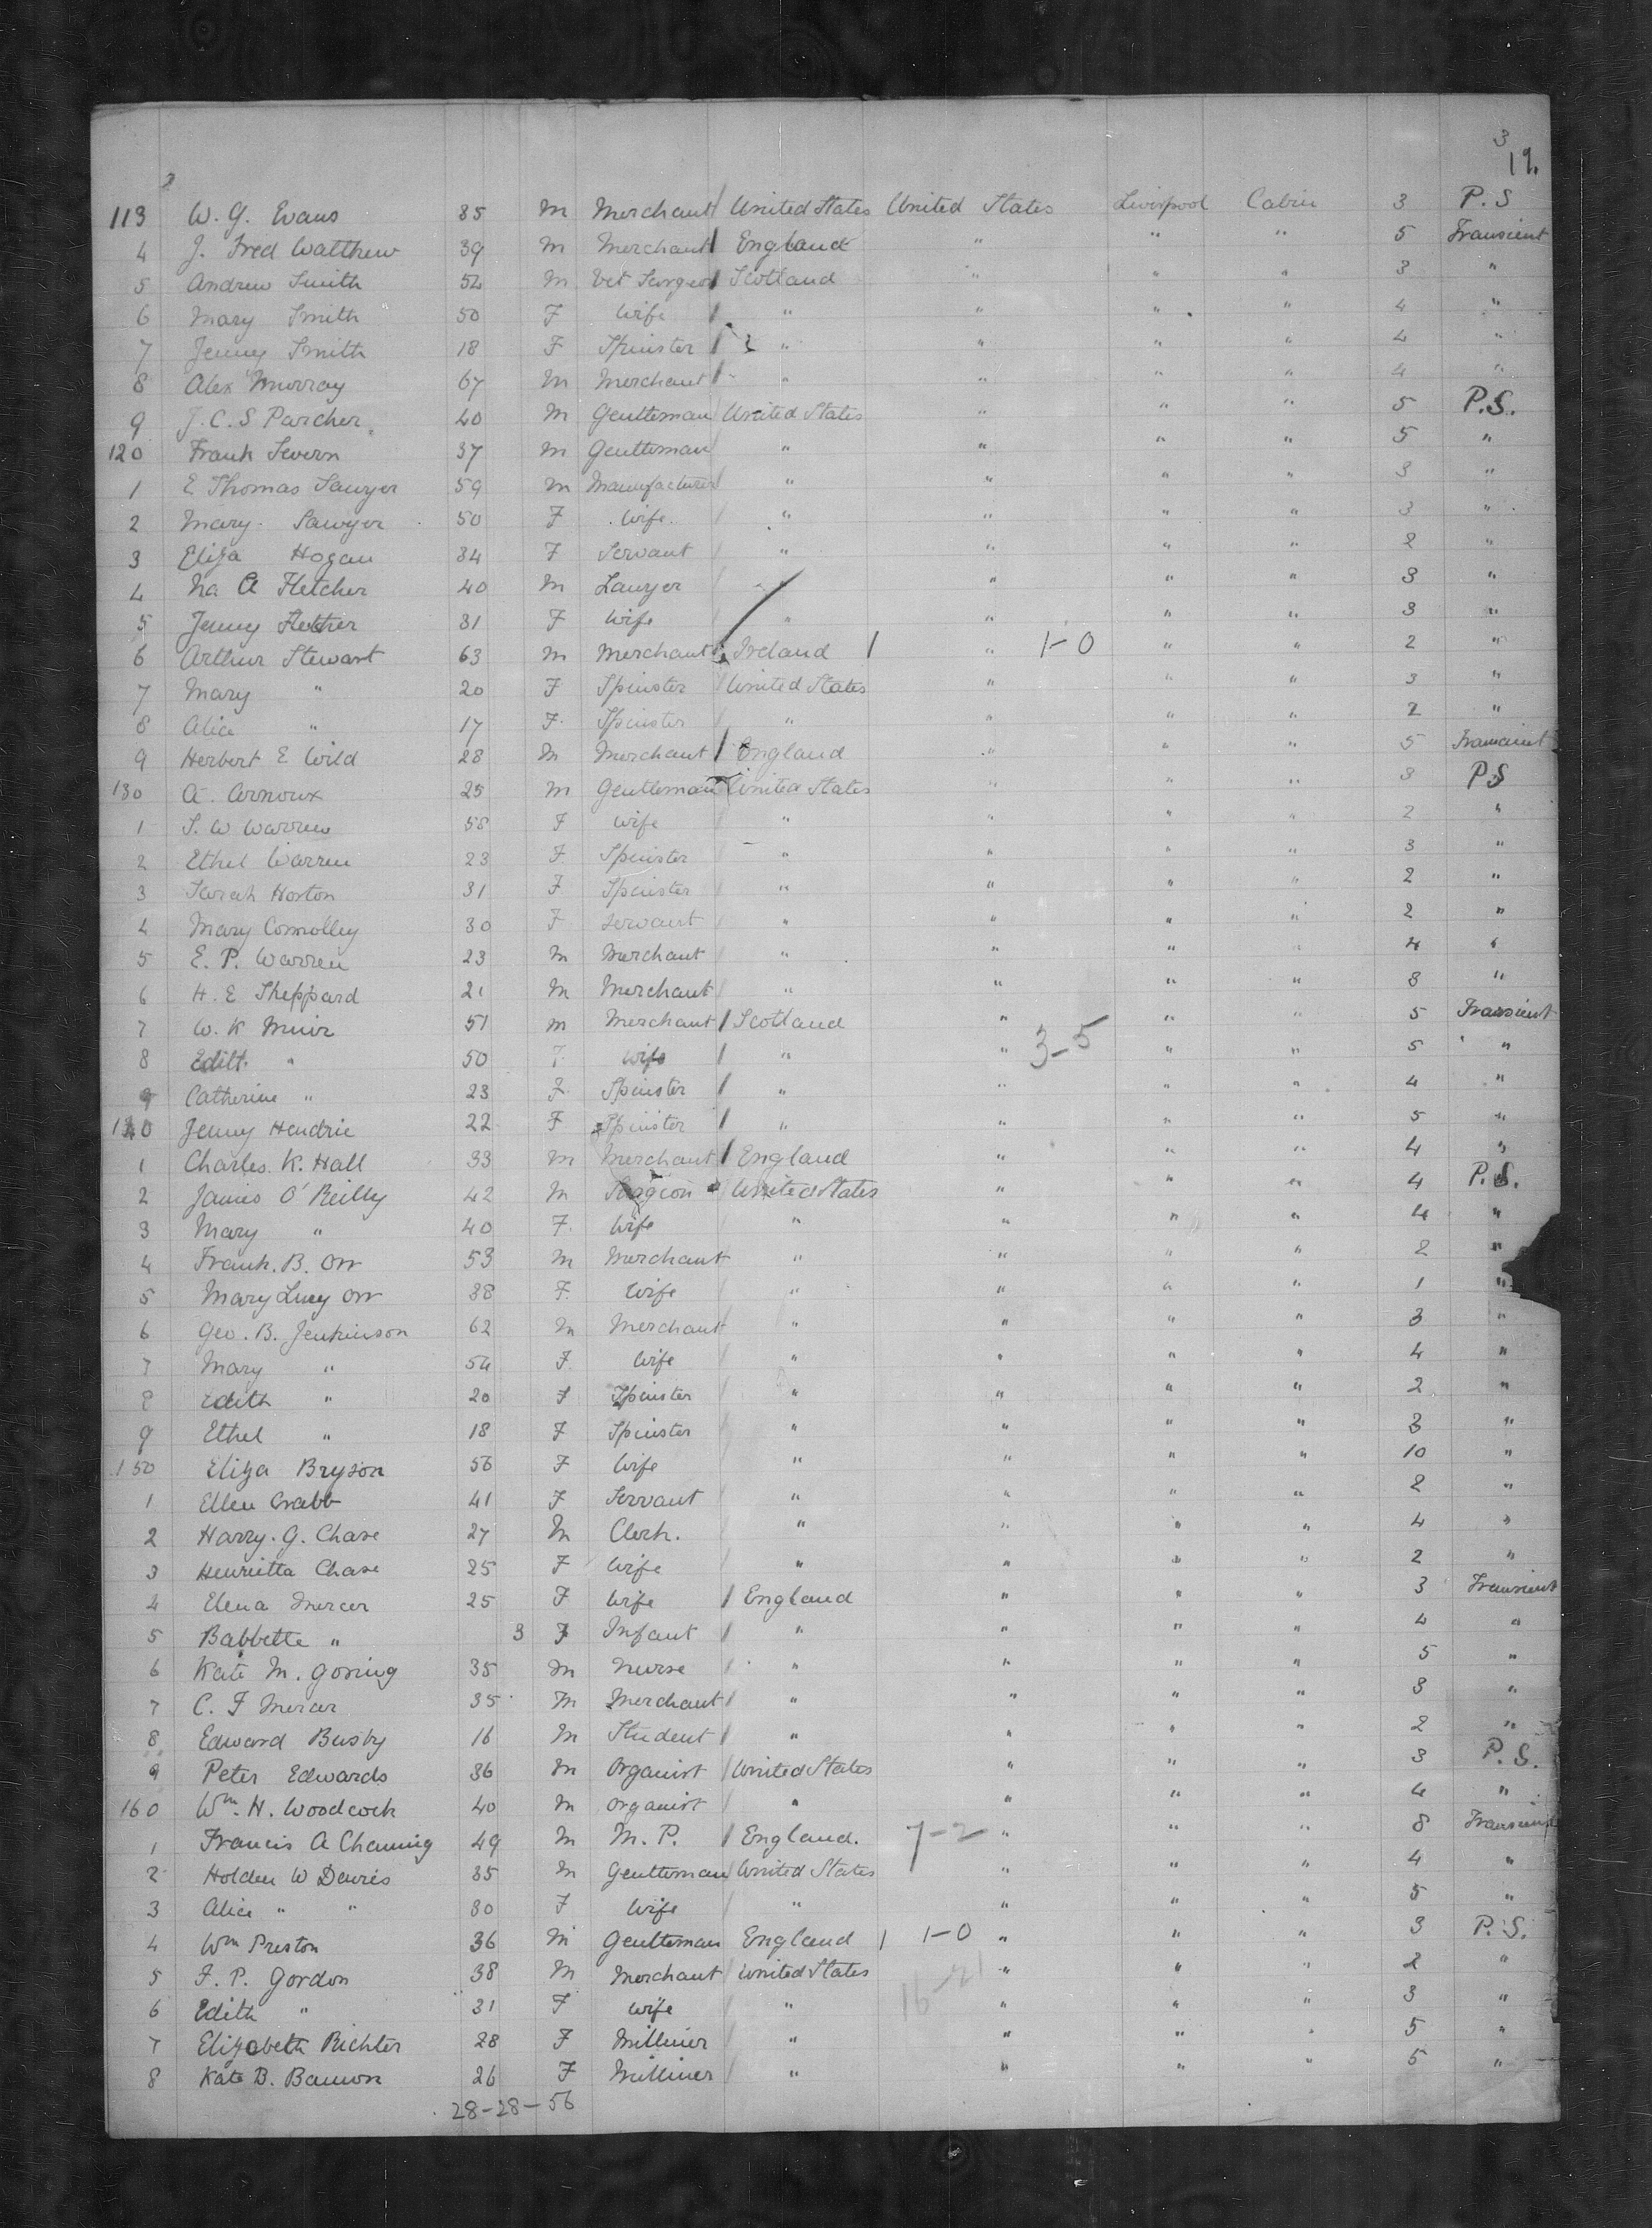 3
19.
113 W. G. Evans 35 M Merchant United States United States Liverpool Cabin 3 P.S
4 J. Fred Watthew 39 M Merchant England " " " 5 Transient
5 Andrew Smith 52 M Vet Surgeon Scotland " " " 3 "
6 Mary Smith 50 F Wife " " " " 4 "
7 Jenny Smith 18 F Spinster " " " " 4 "
8 Alex Murray 67 M Merchant " " " " 4 "
9 J. C. S Parcher 40 M Gentleman United States " " " 5 P.S.
120 Frank Severn 37 M Gentleman " " " " 5 "
1 E Thomas Sawyer 59 M Manufacturer " " " " 3 "
2 Mary Sawyer 50 F Wife " " " " 3 "
3 Eliza Hogan 34 F Servant " " " " 2 "
4 A Fletcher 40 M Lawyer " " " " 3 "
5 Jenny Fletcher 31 F Wife " " " " 3 "
6 Arthur Stewart 63 M Merchant Ireland 1 " 1-0 " " 2 "
7 Mary " 20 F Spinster United States " " " 3 "
8 Alice " 17 F Spinster " " " " 2 "
9 Herbert E Wild 28 M Merchant England " " " 5 Transient
130 A. Arnoux 25 M Gentleman United States " " " 3 P.S
1 S. W Warren 58 F Wife " " " " 2 "
2 Ethel Warren 23 F Spinster " " " " 3 "
3 Sarah Horton 31 F Spinster " " " " 2 "
4 Mary Connolley 30 F Servant " " " " 2 "
5 E. P. Warren 23 M Merchant " " " " 4 "
6 H. E Sheppard 21 M Merchant " " " " 3 "
7 W. K Muir 51 M Merchant Scotland " " " 5 Transient
8 Edith " 50 F Wife " " 3-5 " " 5 "
9 Catherine " 23 F Spinster " " " " 4 "
140 Jenny Hendrie 22 F Spinster " " " " 5 "
1 Charles K. Hall 33 M Merchant England " " " 4 "
2 James O'Reilly 42 M Surgeon United States " " " 4 P.S.
3 Mary " 40 F. Wife " " " " 4 "
4 Frank. B. Orr 53 M Merchant " " " " 2 "
5 Mary Lucy Orr 38 F. Wife " " " " 1 "
6 Geo. B. Jenkinson 62 M Merchant " " " " 3 "
7 Mary " 54 F. Wife " " " " 4 "
8 Edith " 20 F Spinster " " " " 2 "
9 Ethel " 18 F Spinster " " " " 3 "
150 Eliza Bryson 56 F Wife " " " " 10 "
1 Ellen Crabb 41 F Servant " " " " 2 "
2 Harry. G. Chase 27 M Clerk. " " " " 4 "
3 Henrietta Chase 25 F Wife " " " " 2 "
4 Elena Mercer 25 F Wife England " " " 3 Transient
5 Babbette " 3 F Infant " " " " 4 "
6 Kate M. Goring 35 M Nurse " " " " 5 "
7 C. F Mercer 35 M Merchant " " " " 3 "
8 Edward Busby 16 M Student " " " " 2 "
9 Peter Edwards 36 M Organist United States " " " 3 P.S.
160 Wm. H. Woodcock 40 M Organist " " " " 4 "
1 Francis A Channing 49 M M.P. England. 7-2 " " " 8 Transient
2 Holden W Davies 35 M Gentleman United States " " " 4 "
3 Alice " " 30 F Wife " " " " 5 "
4 Wm Preston 36 M Gentleman England 1 1-0 " " " 3 P.S.
5 F. P. Gordon 38 M Merchant United States " " " 2 "
6 Edith " 31 F Wife " 16-21 " " " 3 "
7 Elizabeth Richter 28 F Milliner " " " " 5 "
8 Kate B. Bannon 26 F Milliner " " " " 5 "
28-28-56